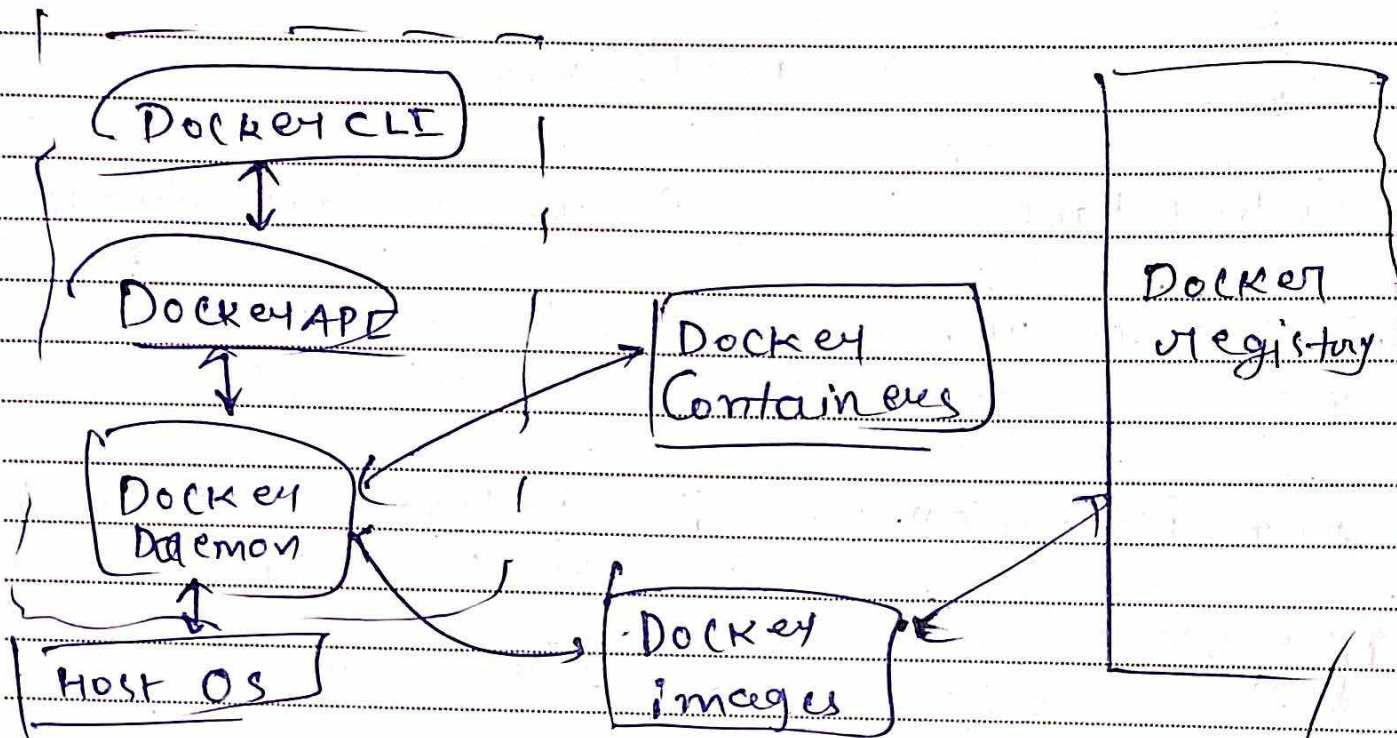 Docker CLI
Docker API
Docker
Daemon
Host OS
Docker
Containers
Docker
images
Docker
registry